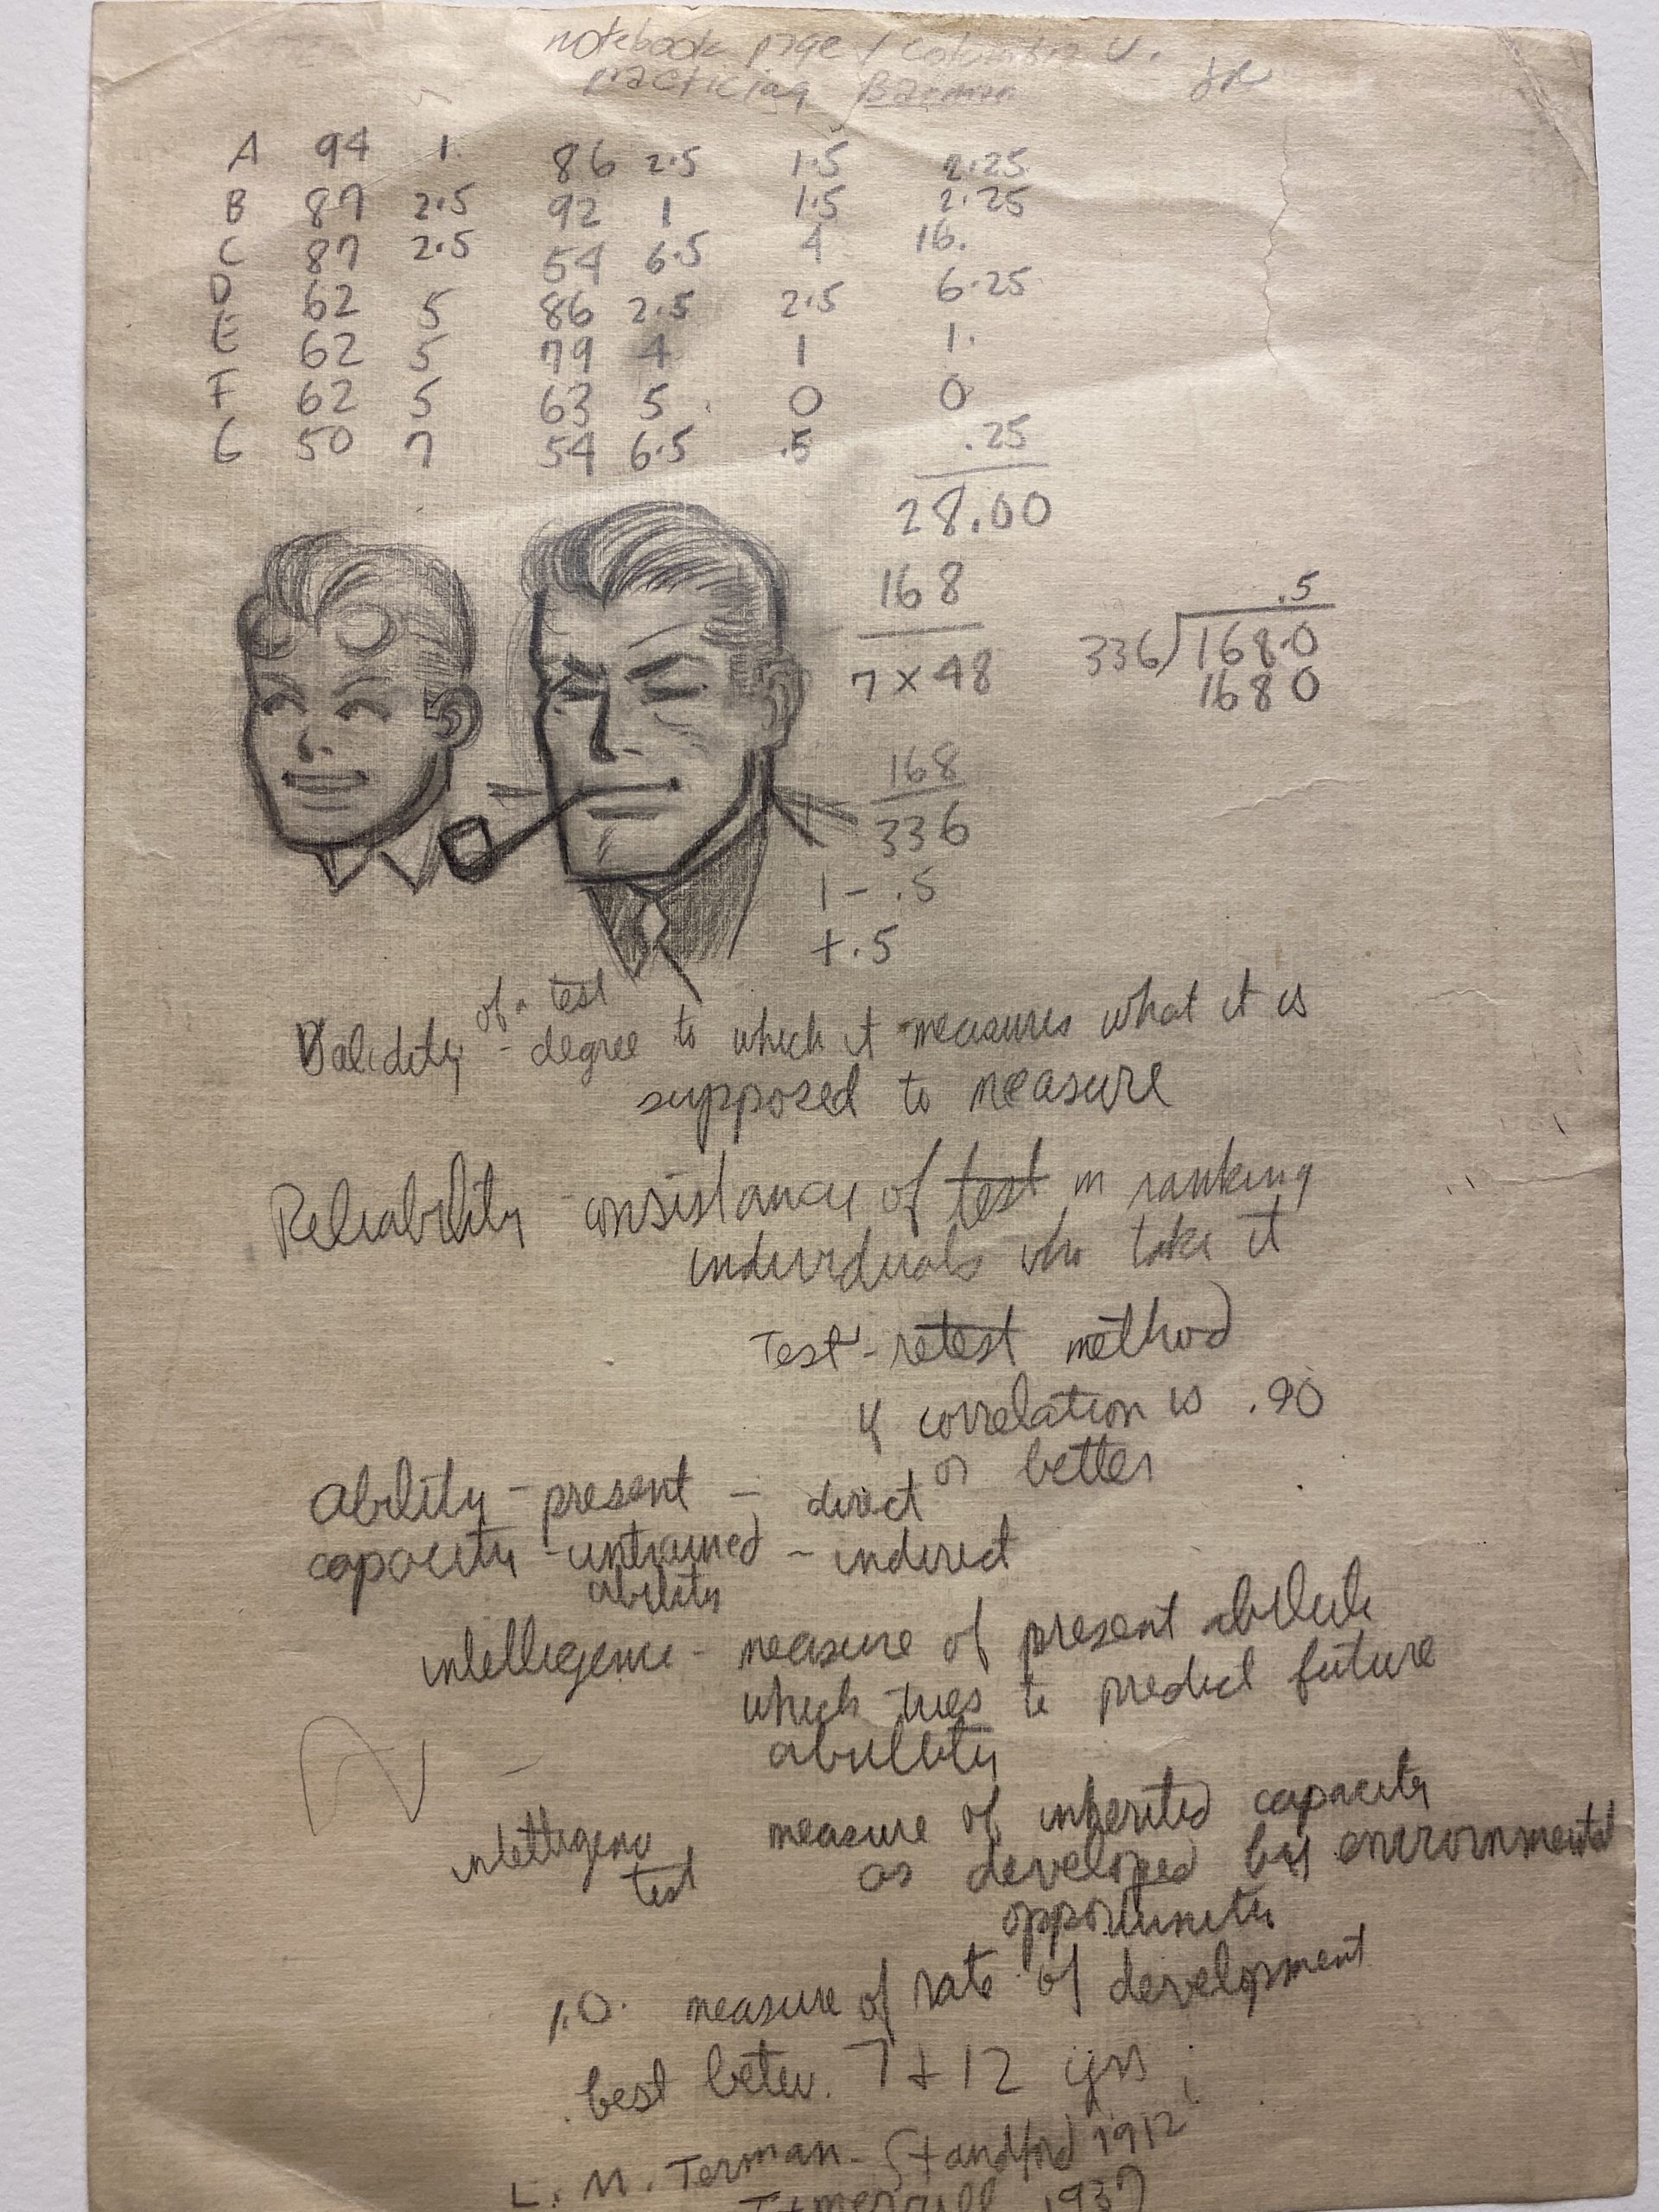 notebook page / Columbia U.
practicing Batman JR
A 94 1. 86 2.5 1.5 2.25
B 87 2.5 92 1 1.5 2.25
C 87 2.5 54 6.5 4 16.
D 62 5 86 2.5 2.5 6.25
E 62 5 79 4 1 1.
F 62 5 63 5 0 0
G 50 7 54 6.5 .5 .25
28.00
168
7 x 48
.5
336) 168.0
168 0
168
336
1 - .5
+ .5
of a test
Validity - degree to which it measures what it is
supposed to measure
Reliability - consistancy of test in ranking
individuals who take it
Test-retest method
if correlation is .90
or better
Ability - present - direct
capacity - untrained - indirect
ability
intelligence - measure of present
which tries to predict future
ability
intelligence measure of inherited capacity
test as developed by environmental
opportunity
I.Q. measure of rate of development
best betw. 7 + 12 yrs
L. M. Terman - Standford 1912
T + merrill 1937